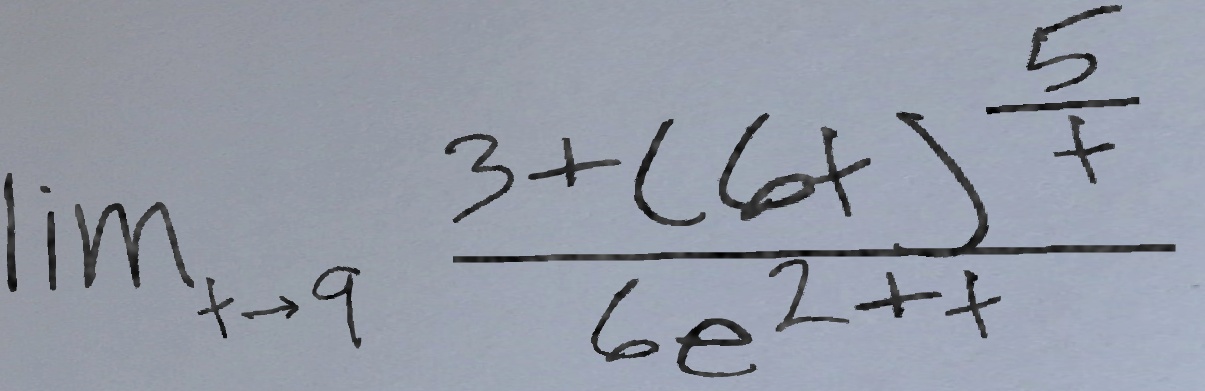 \lim_{t \to 9} \frac{3+(6t)^{\frac{5}{t}}}{6e^{2+t}}